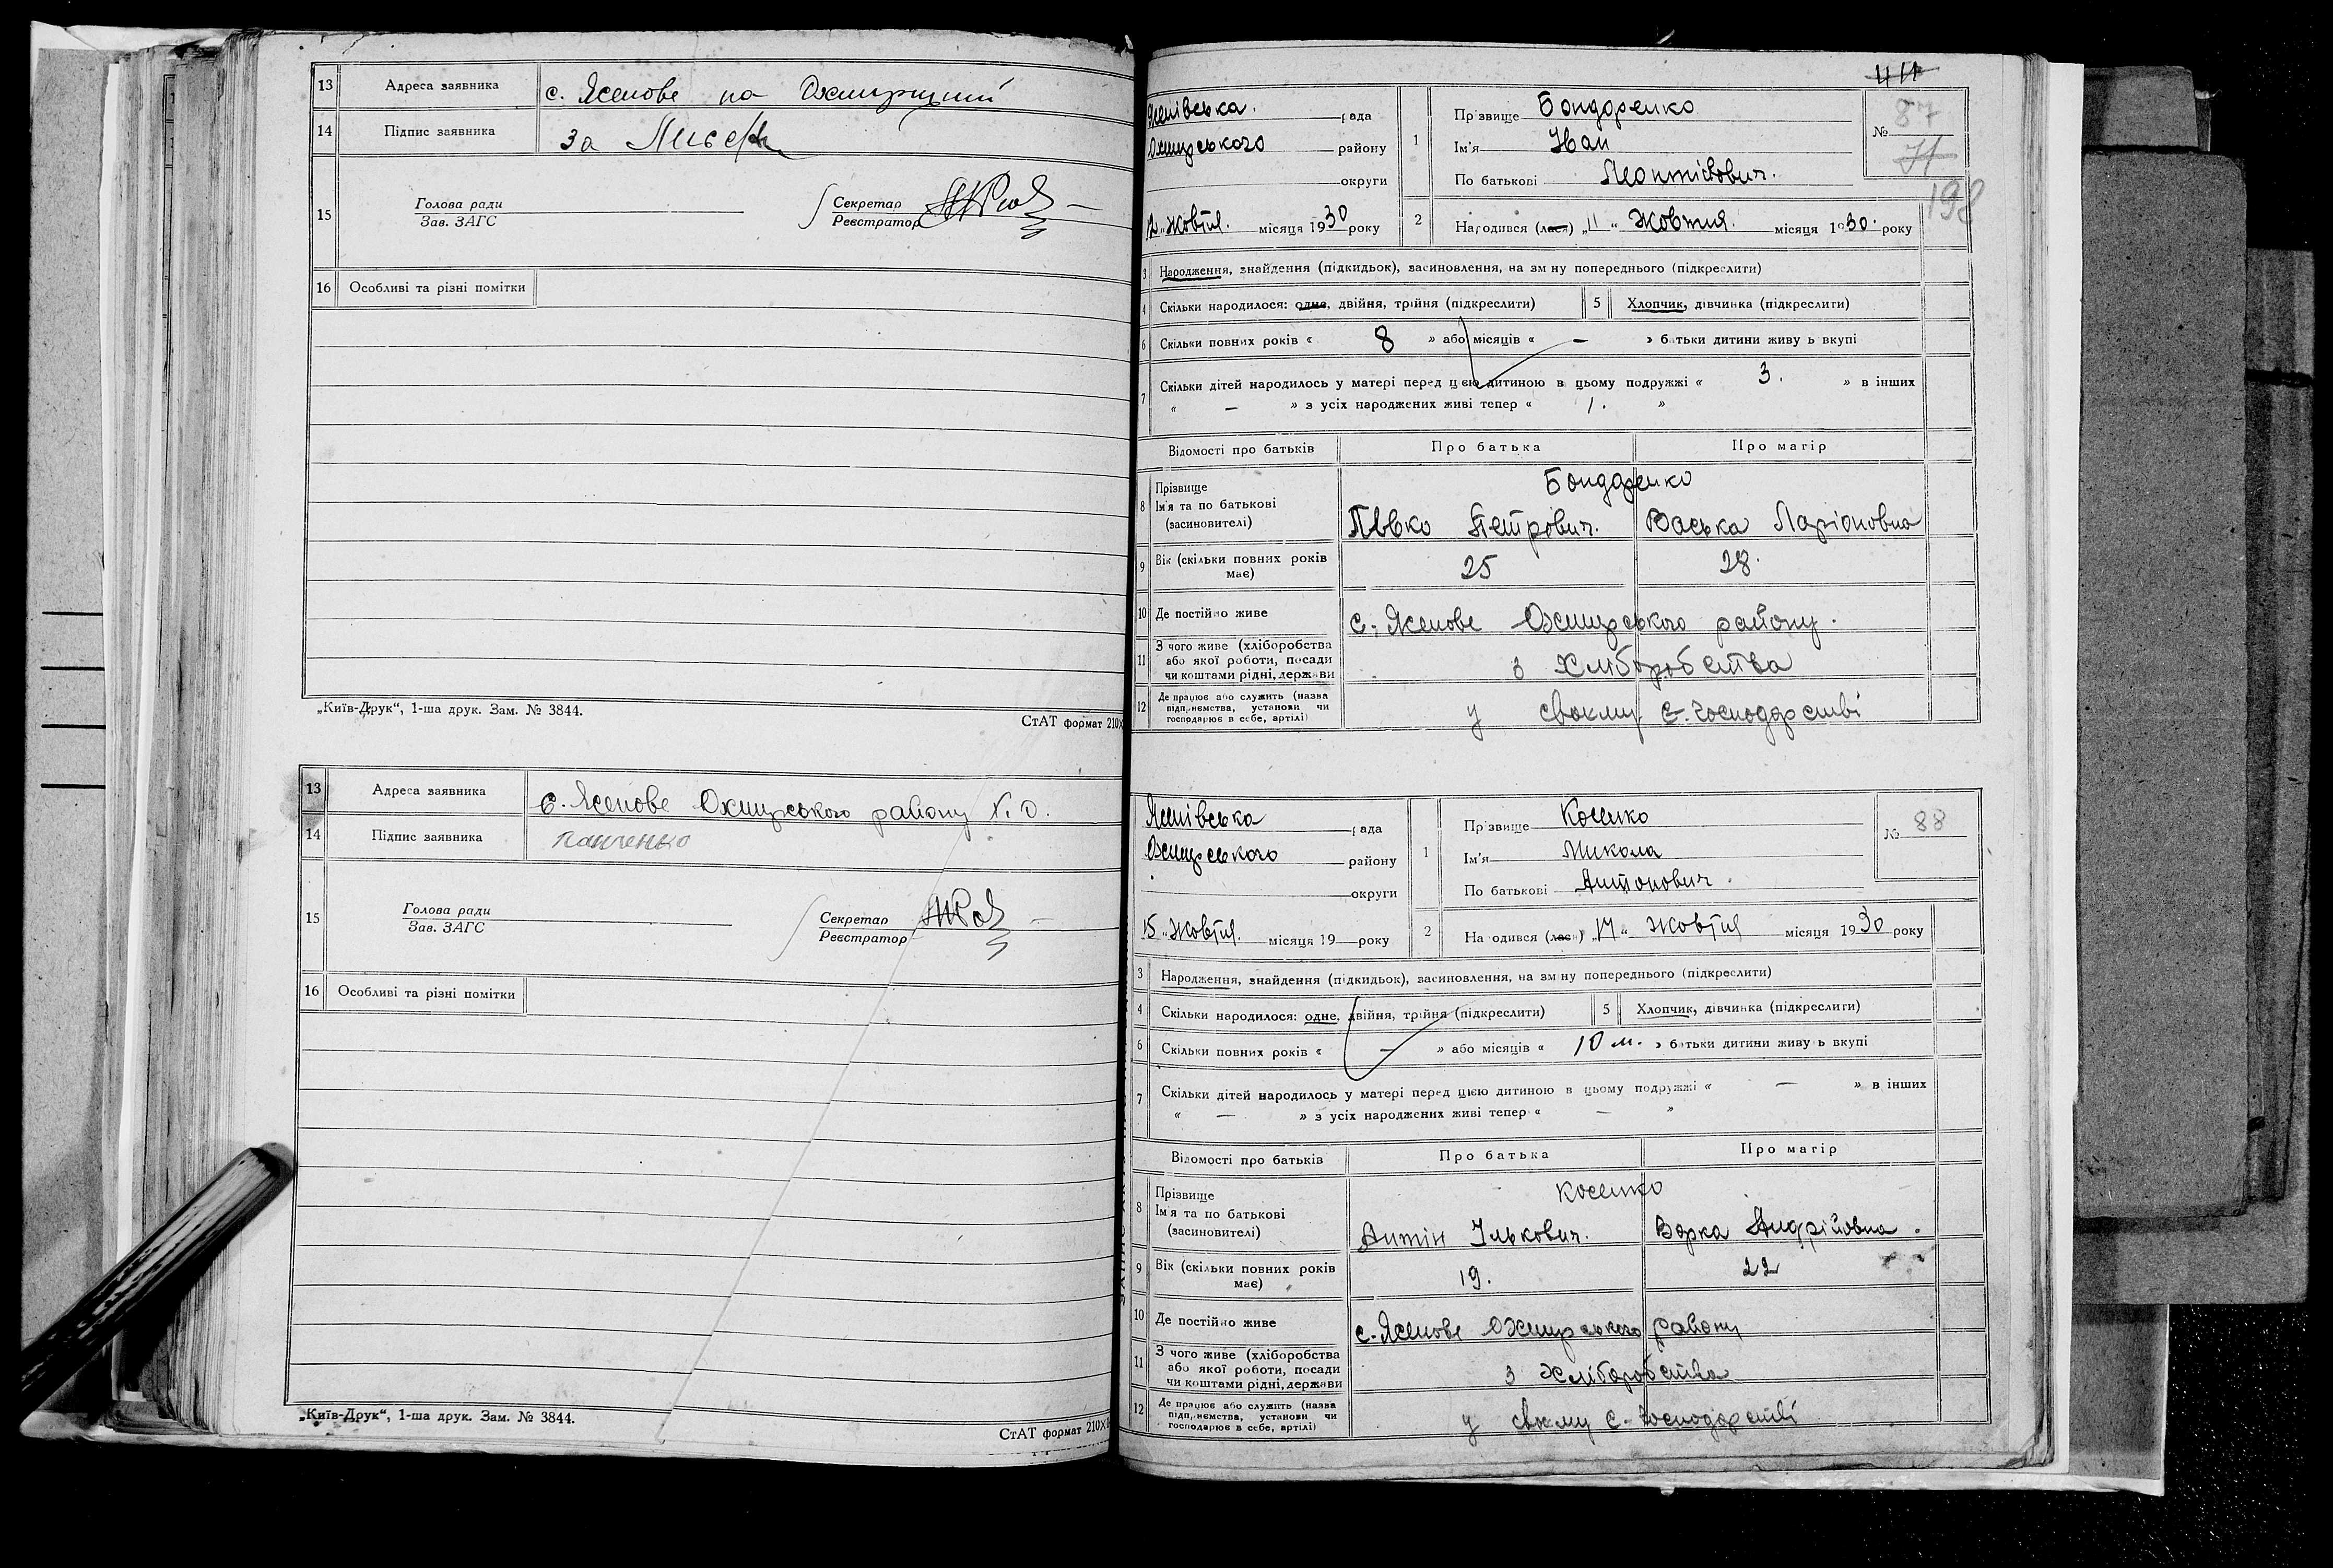 13 Адреса заявника с. Ясенове на Охтирщині
14 Підпис заявника за
15 Голова ради Секретар
Зав. ЗАГС Реєстратор
16 Особливі та різні помітки
„Київ-Друк“, 1-ша друк. Зам. № 3844.
СтАТ формат 210×
13 Адреса заявника с. Ясенове Охтирського району
14 Підпис заявника Панченко
15 Голова ради Секретар
Зав. ЗАГС Реєстратор
16 Особливі та різні помітки
„Київ-Друк“, 1-ша друк. Зам. № 3844.
СтАТ формат 210×
411
Ясенівська рада
Охтирського району
округи
12 „ Жовтня місяця 1930 року
1 Прізвище Бондаренко
Ім'я Іван
По батькові Леонтійович.
№ 87
71
198
2 Народився (лася) „11“ Жовтня місяця 1930 року
3 Народження, знайдення (підкидьок), засиновлення, на зміну попереднього (підкреслити)
4 Скільки народилося: одне, двійня, трійня (підкреслити) 5 Хлопчик, дівчинка (підкреслити)
6 Скільки повних років « 8 » або місяців « — » батьки дитини живуть вкупі
7 Скільки дітей народилось у матері перед цією дитиною в цьому подружжі « 3. » в інших
« — » з усіх народжених живі тепер « 1. »
Відомості про батьків Про батька Про матір
8 Прізвище Бондаренко
Ім'я та по батькові
(засиновителі) Левко Петрович. Васька Ларіоновна
9 Вік (скільки повних років має) 25 28.
10 Де постійно живе с. Ясенове Охтирського району.
11 З чого живе (хліборобства
або якої роботи, посади з Хліборобства
чи коштами рідні, держави
12 Де працює або служить (назва
підприємства, установи чи у своєму с. господарстві
господарює в себе, артілі)
Ясенівська рада
Охтирського району
округи
15 „ Жовтня. місяця 19 року
1 Прізвище Косенко
Ім'я Микола
По батькові Антонович.
№ 88
2 Народився (лася) „14“ Жовтня місяця 1930 року
3 Народження, знайдення (підкидьок), засиновлення, на зміну попереднього (підкреслити)
4 Скільки народилося: одне, двійня, трійня (підкреслити) 5 Хлопчик, дівчинка (підкреслити)
6 Скільки повних років « — » або місяців « 10 м. » батьки дитини живуть вкупі
7 Скільки дітей народилось у матері перед цією дитиною в цьому подружжі « — » в інших
« — » з усіх народжених живі тепер « — »
Відомості про батьків Про батька Про матір
8 Прізвище Косенко
Ім'я та по батькові
(засиновителі) Антін Ількович. Варка Андрійовна.
9 Вік (скільки повних років має) 19. 22
10 Де постійно живе с. Ясенове Охтирського району
11 З чого живе (хліборобства
або якої роботи, посади з Хліборобства
чи коштами рідні, держави
12 Де працює або служить (назва
підприємства, установи чи у своєму с. господарстві
господарює в себе, артілі)